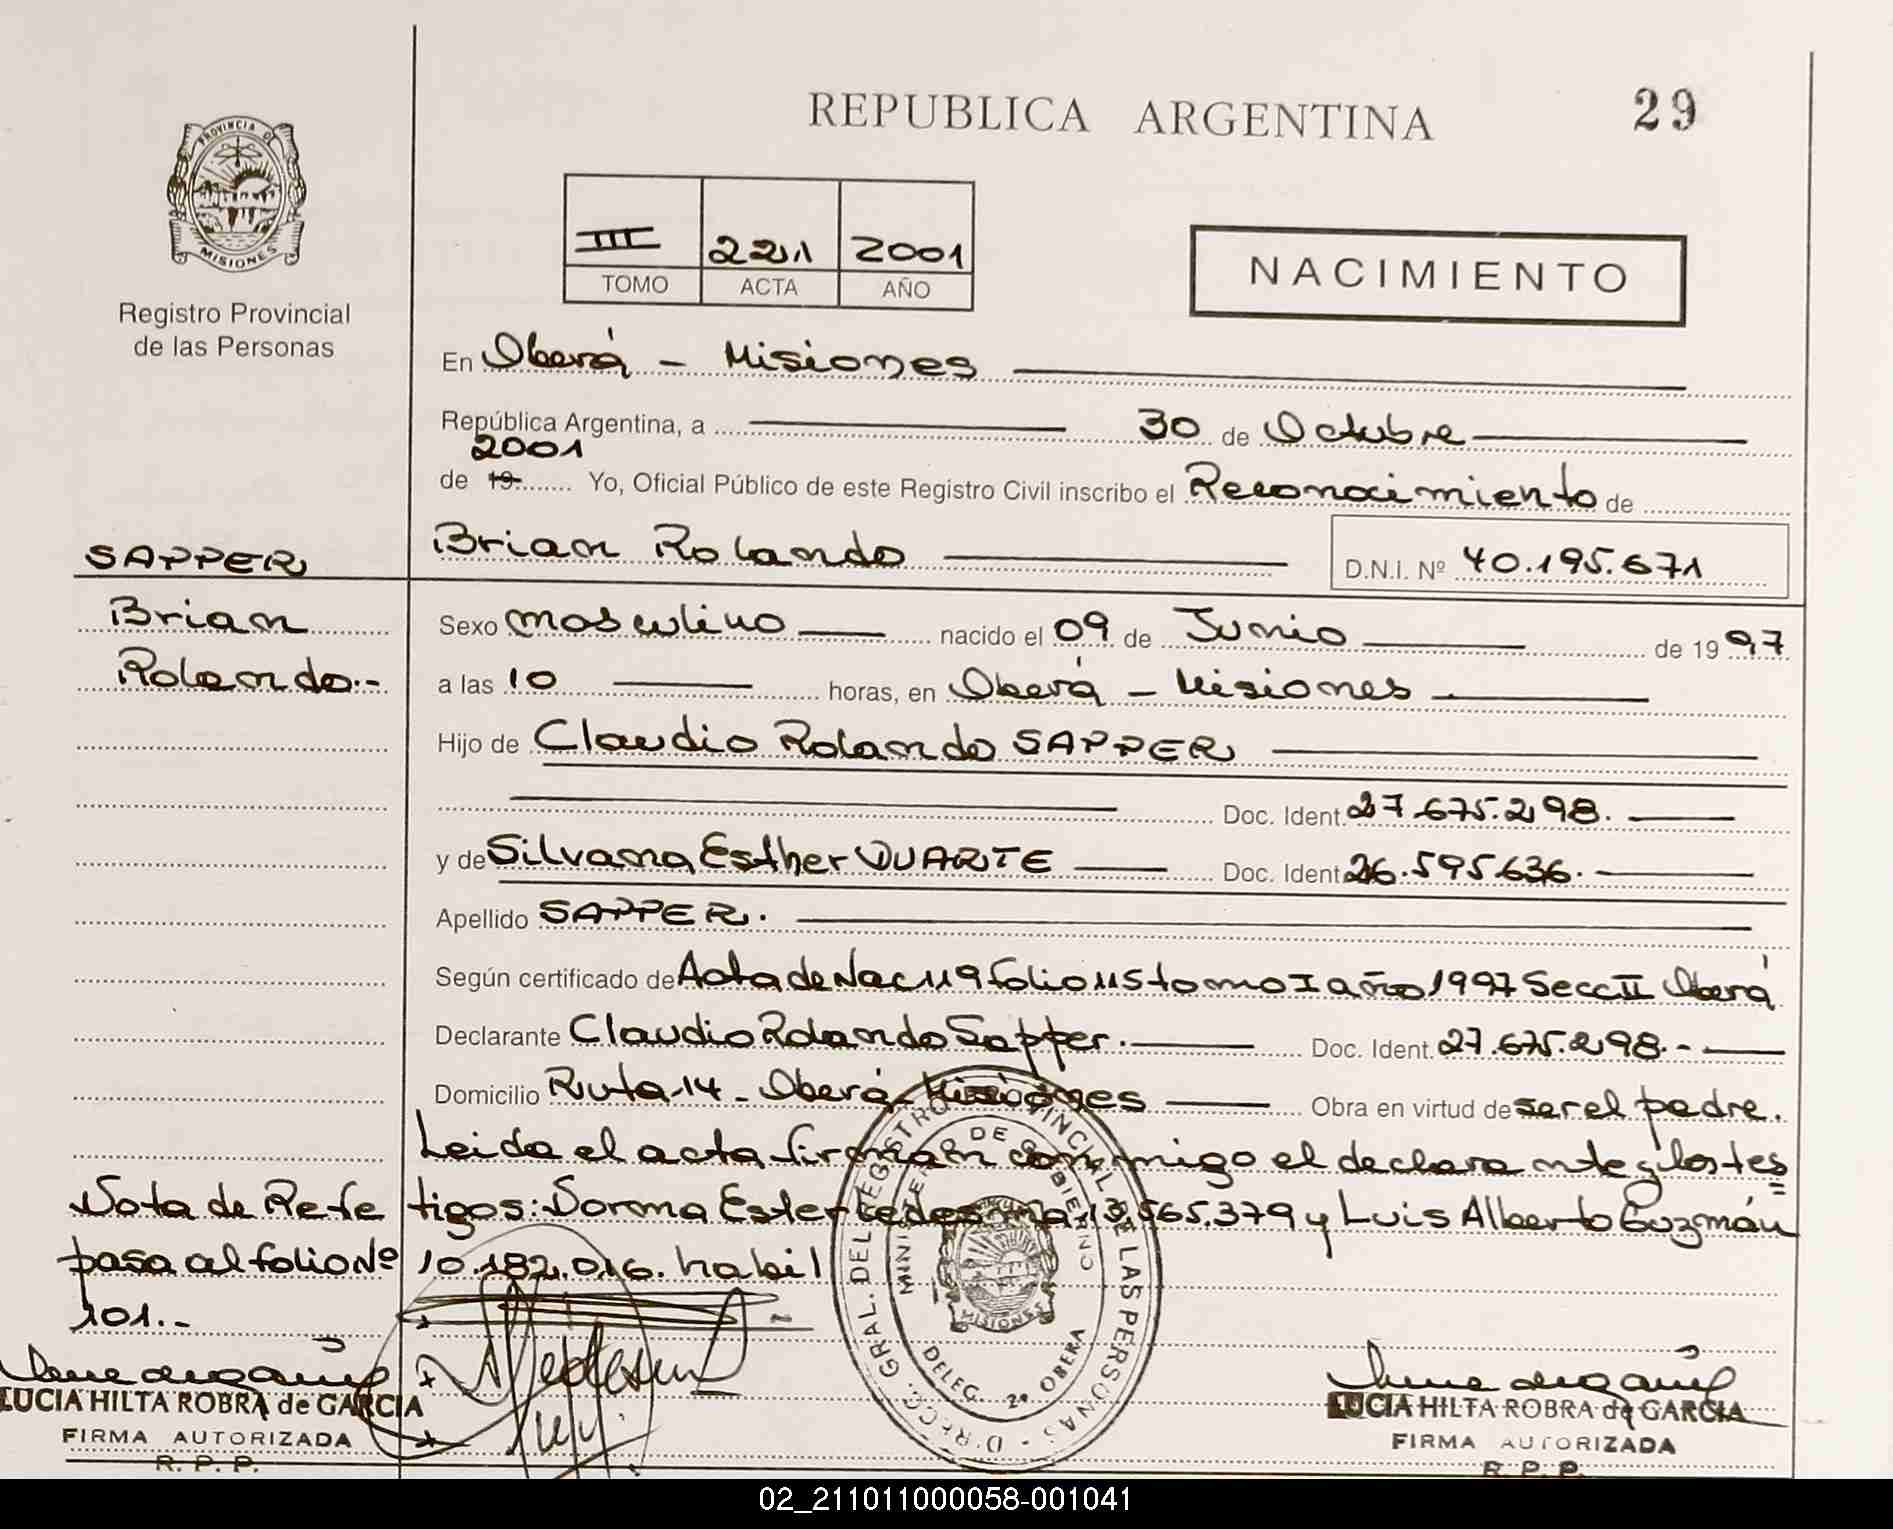 REPUBLICA ARGENTINA
29
PROVINCIA DE
MISIONES
Registro Provincial
de las Personas
III 221 2001
TOMO ACTA AÑO
NACIMIENTO
En Oberá - Misiones
República Argentina, a 30 de Octubre
2001
de 19 Yo, Oficial Público de este Registro Civil inscribo el Reconocimiento de
Brian Rolando
D.N.I. Nº 40.195.671
SAPPER
Brian
Rolando.-
Sexo masculino nacido el 09 de Junio de 1997
a las 10 horas, en Oberá - Misiones
Hijo de Claudio Rolando SAPPER
Doc. Ident. 27.675.298.
y de Silvana Esther DUARTE Doc. Ident. 26.595.636.
Apellido SAPPER.
Según certificado de Acta de Nac 119 folio 115 tomo I año 1997 Secc II Oberá
Declarante Claudio Rolando Sapper. Doc. Ident. 27.675.298.-
Domicilio Ruta 14 - Oberá - Misiones Obra en virtud de ser el padre.
Leida el acta firman conmigo el declarante y los tes
tigos: Norma Ester 13.565.379 y Luis Alberto Guzmán
10.182.016. habil
Nota de Refe
pasa al folio Nº
101.-
LUCIA HILTA ROBRA de GARCIA
FIRMA AUTORIZADA
R. P. P.
D'RECC. GRAL. DEL REGISTRO PROVINCIAL DE LAS PERSONAS -
MINISTERIO DE GOBIERNO
MISIONES
DELEG. 2ª OBERA
LUCIA HILTA ROBRA de GARCIA
FIRMA AUTORIZADA
R. P. P.
02_211011000058-001041